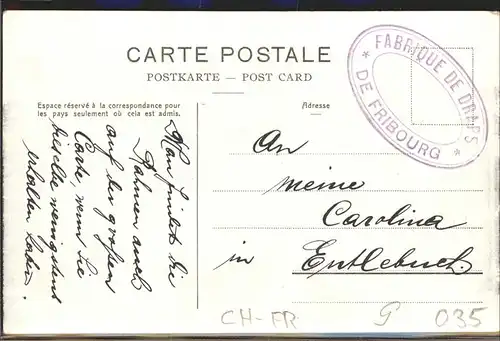 CARTE POSTALE
POSTKARTE — POST CARD
Espace réservé à la correspondance pour
les pays seulement où cela est admis.
Adresse
* FABRIQUE DE DRAPS *
DE FRIBOURG
Man findet die
Rahmen auch
auf der großen
Carte, wenn Sie
dieselbe wenigstens
erhalten haben.
An
meine
Carolina
in Entlebuch.
CH-FR
G 035